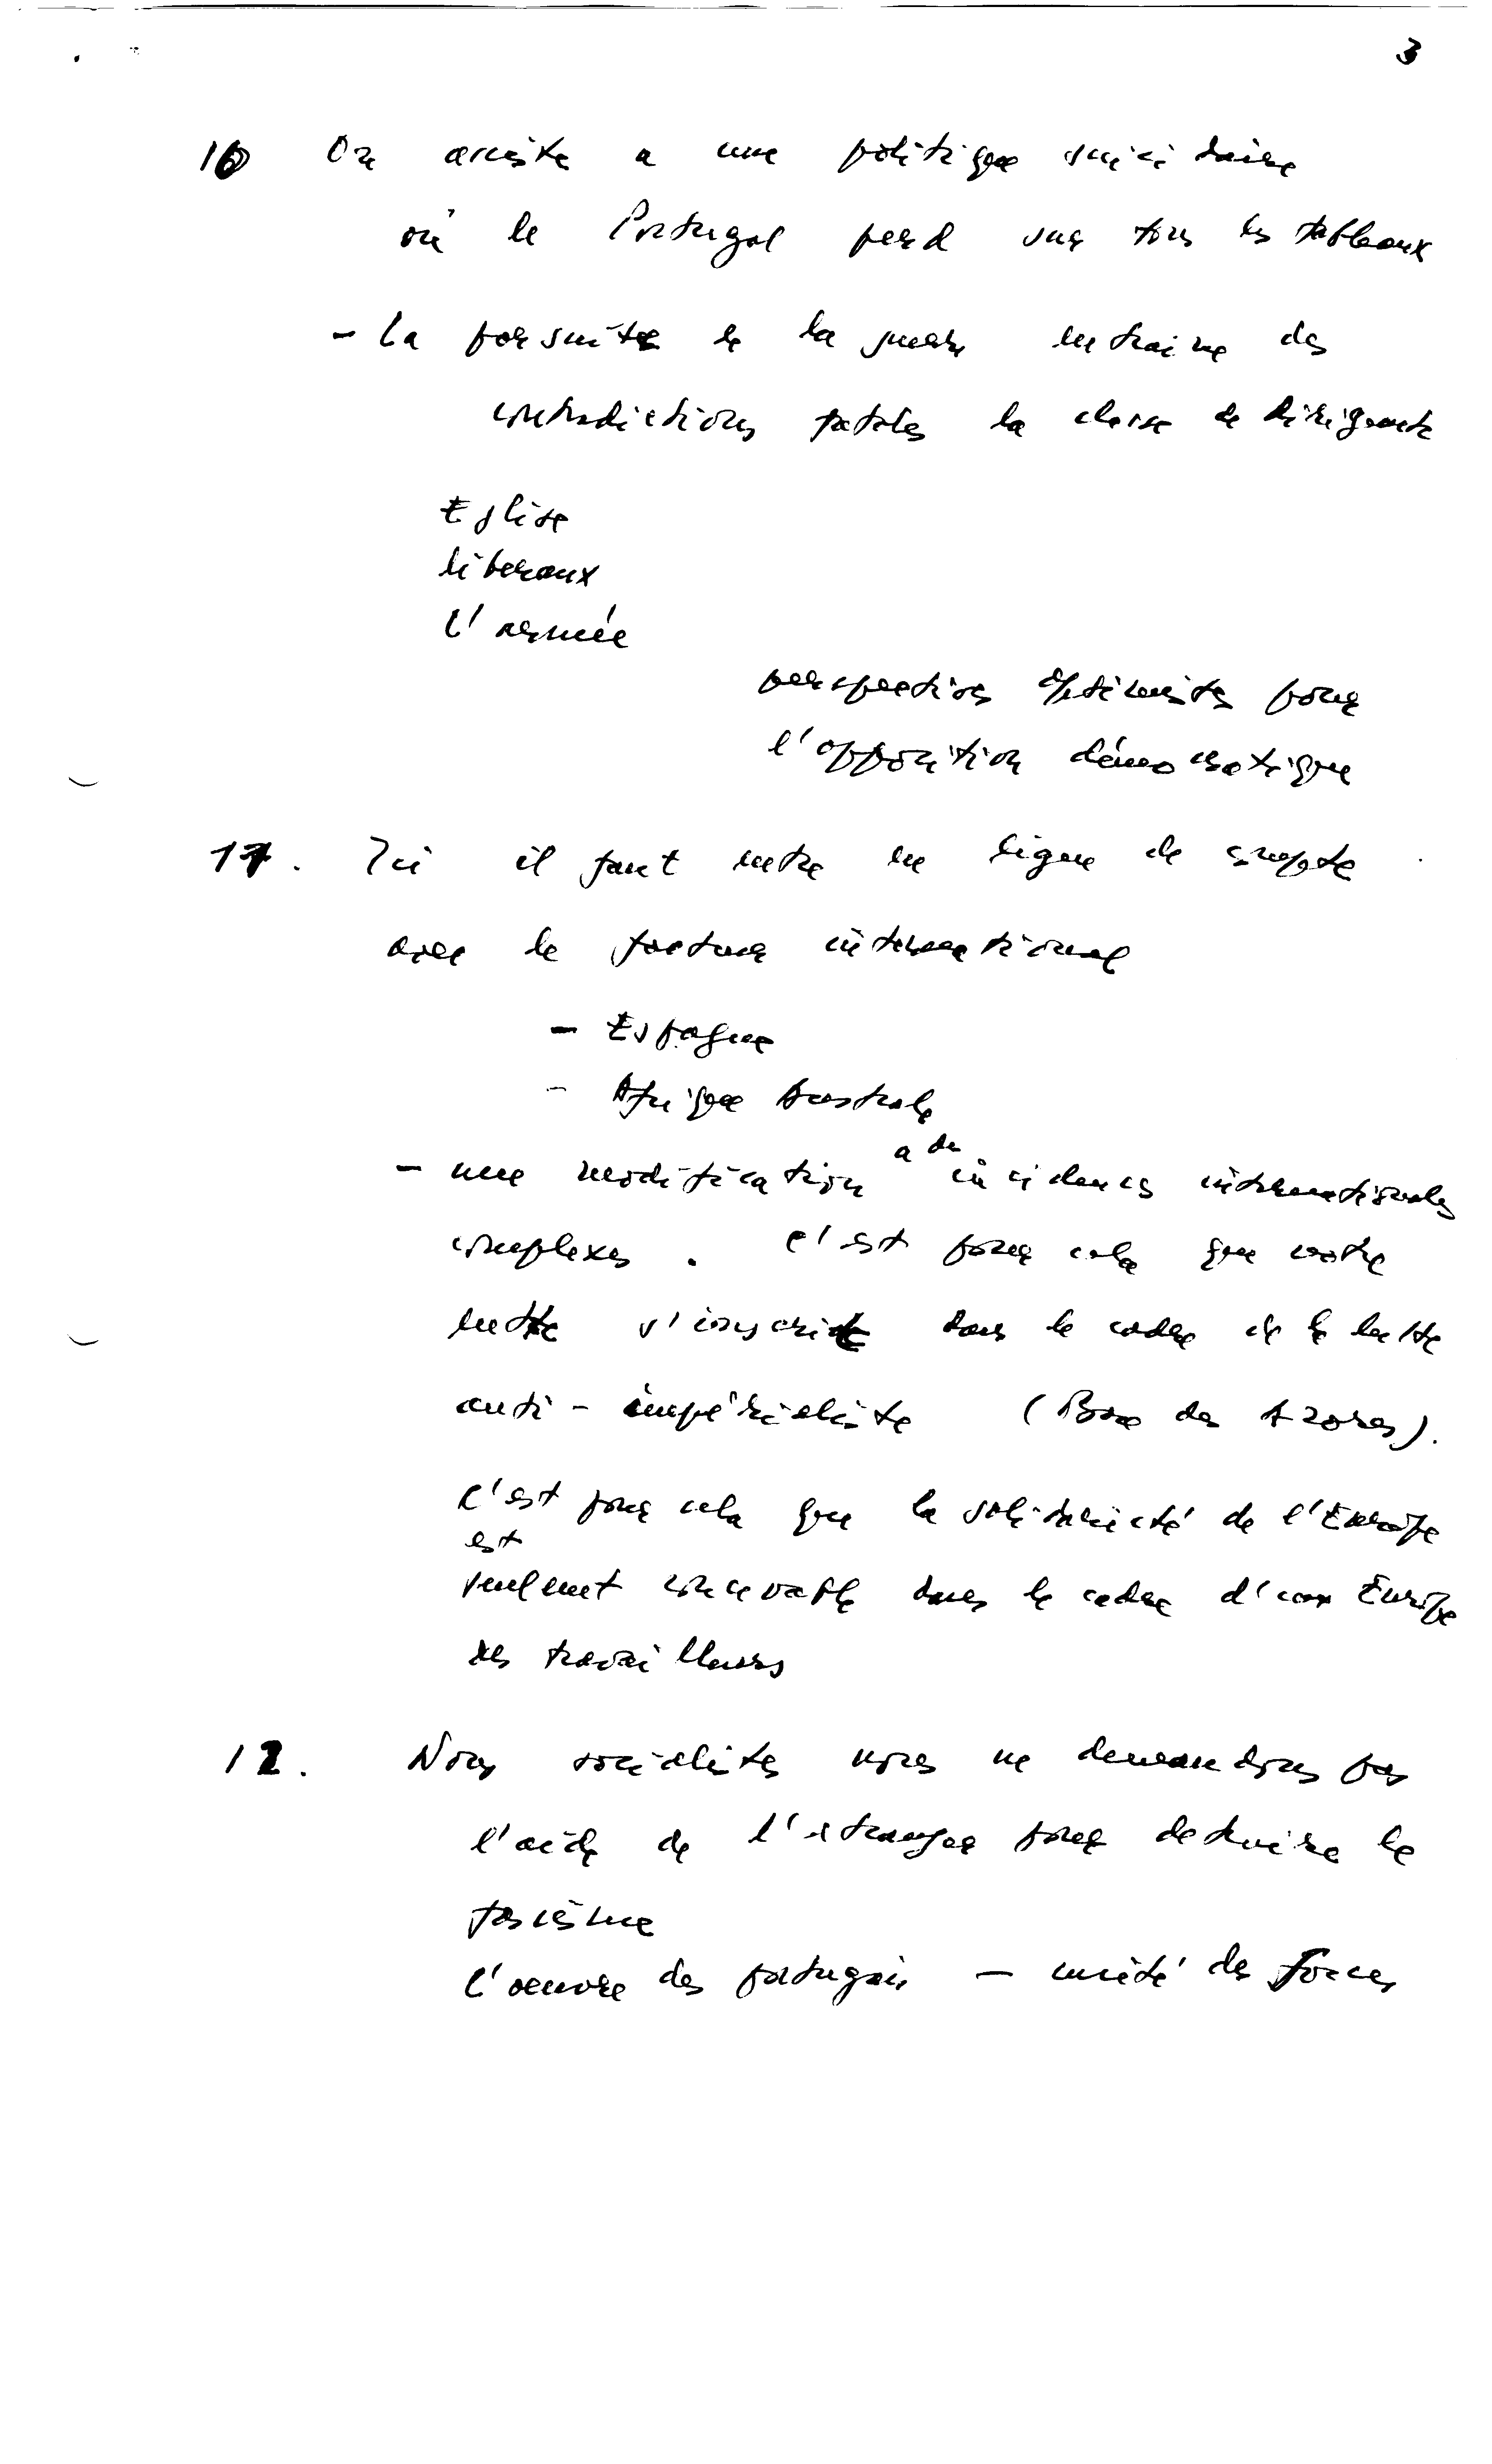 3
10 On assiste a une politique suicidaire
où le Portugal perd sur tous les tableaux
- La porsuite de la guerre entraine des
contradictions fatales la classe de dirigeante
Eglise
liberaux
L'armée
perspectives optimistes pour
l'opposition démocratique
11. Ici il faut entre en ligne de compte
avec le facteur international
- Espagne
- Afrique Australe
- une modification a des incidences internationales
complexes. C'est pour cela que notre
lutte s'inscrit dans le cadre de la lutte
anti-impérialiste (Base des Azores).
C'est pour cela que la solidarieté de l'Europe
est
seulement concevable dans le cadre d'une Europe
des travailleurs
12. Nous socialistes nous ne demandons pas
l'aide de l'etranger pour detruire le
fascisme
L'oeuvre des portugais - unité des forces